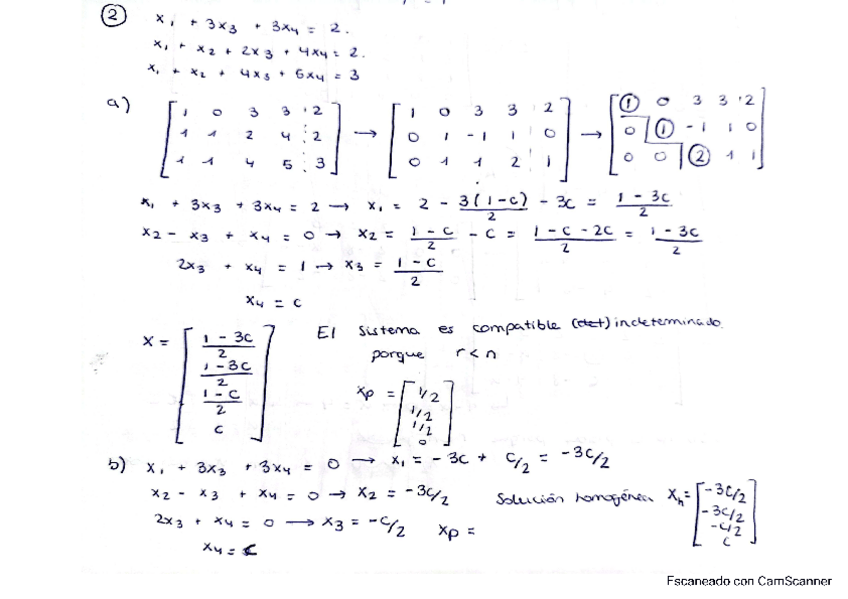 ②
x₁ + 3x₃ + 3x₄ = 2.
x₁ + x₂ + 2x₃ + 4x₄ = 2.
x₁ + x₂ + 4x₃ + 5x₄ = 3
a) [1 0 3 3 : 2] → [1 0 3 3 2] → [① 0 3 3 : 2]
[1 1 2 4 : 2] [0 1 -1 1 0] [0 ① -1 1 0]
[1 1 4 5 : 3] [0 1 1 2 1] [0 0 ② 1 1]
x₁ + 3x₃ + 3x₄ = 2 → x₁ = 2 - 3(1-c)/2 - 3c = (1 - 3c)/2
x₂ - x₃ + x₄ = 0 → x₂ = (1 - c)/2 - c = (1 - c - 2c)/2 = (1 - 3c)/2
2x₃ + x₄ = 1 → x₃ = (1 - c)/2
x₄ = c
x = [(1 - 3c)/2
(1 - 3c)/2
(1 - c)/2
c]
El sistema es compatible (det) indeterminado.
porque r < n
xp = [1/2
1/2
1/2
0]
b) x₁ + 3x₃ + 3x₄ = 0 → x₁ = -3c + c/2 = -3c/2
x₂ - x₃ + x₄ = 0 → x₂ = -3c/2 Solución homogénea xh = [-3c/2
-3c/2
-c/2
c]
2x₃ + x₄ = 0 → x₃ = -c/2 xp =
x₄ = c
Escaneado con CamScanner